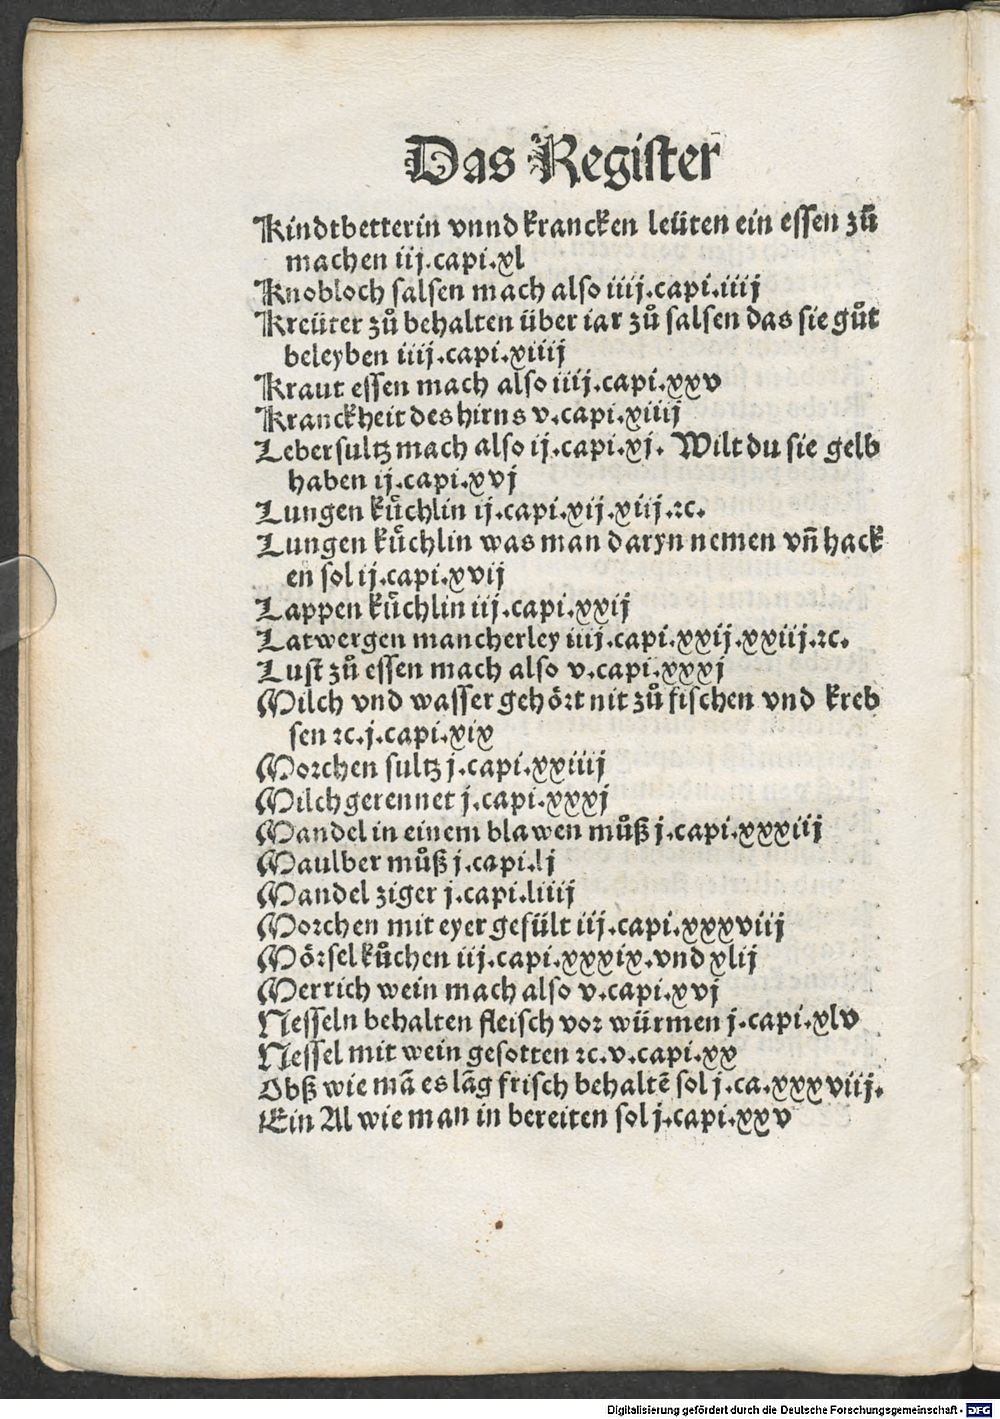 Das Register
Kindtbetterin vnnd krancken leüten ein essen zů
machen iij.capi.xl
Knobloch salsen mach also iiij.capi.iiij
Kreüter zů behalten über iar zů salsen das sie gůt
beleyben iiij.capi.xiiij
Kraut essen mach also iij.capi.xxv
Kranckheit des hirns v.capi.xiiij
Lebersultz mach also ij.capi.xj. Wilt du sie gelb
haben ij.capi.xvj
Lungen kůchlin ij.capi.xij.xiij.ꝛc.
Lungen kůchlin was man daryn nemen vñ hack
en sol ij.capi.xvij
Lappen kůchlin iij.capi.xxij
Latwergen mancherley iiij.capi.xxij.xxiij.ꝛc.
Lust zů essen mach also v.capi.xxxj
Milch vnd wasser gehört nit zů fischen vnd kreb
sen ꝛc.j.capi.xix
Morchen sultz j.capi.xxiiij
Milch gerennet j.capi.xxxj
Mandel in einem blawen můß j.capi.xxxiij
Maulber můß j.capi.lj
Mandel ziger j.capi.liiij
Morchen mit eyer gefült iij.capi.xxxviij
Mörsel kůchen iij.capi.xxxix.vnd xlij
Merrich wein mach also v.capi.xvj
Nesseln behalten fleisch vor würmen j.capi.xlv
Nessel mit wein gesotten ꝛc.v.capi.xx
Obß wie mā es lāg frisch behaltē sol j.ca.xxxviij.
Ein Al wie man in bereiten sol j.capi.xxv
Digitalisierung gefördert durch die Deutsche Forschungsgemeinschaft - DFG